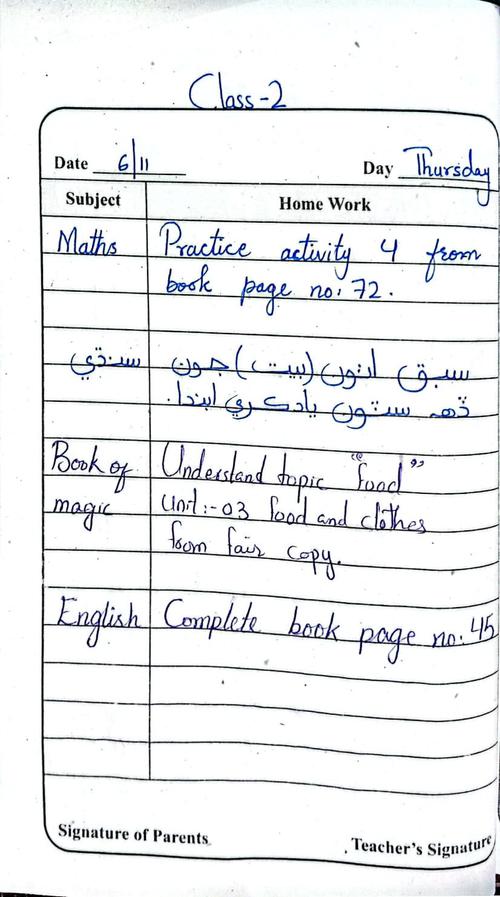 Class-2
Date 6/11 Day Thursday
Subject Home Work
Maths Practice activity 4 from
book page no: 72.
سنڌي سبق اٺون (بيت) جون
ڏھ سٽون ياد ڪري ايندا.
Book of Understand topic "food"
magic Unit:-03 food and clothes
from fair copy.
English Complete book page no. 45
Signature of Parents Teacher's Signature